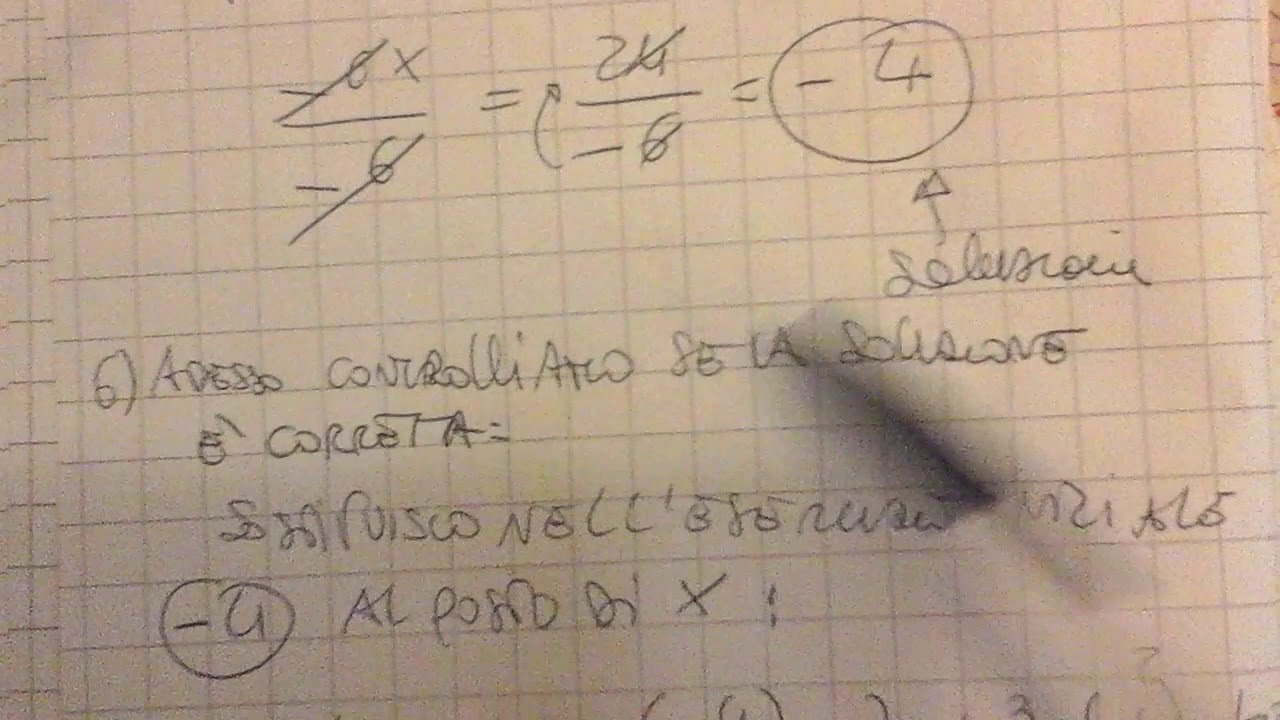 -6x/-6 = 24/-6 = -4
soluzione
6) ADESSO CONTROLLIAMO SE LA SOLUZIONE
È CORRETTA:
SOSTITUISCO NELL'ESERCIZIO INIZIALE
-4 AL POSTO DI X :